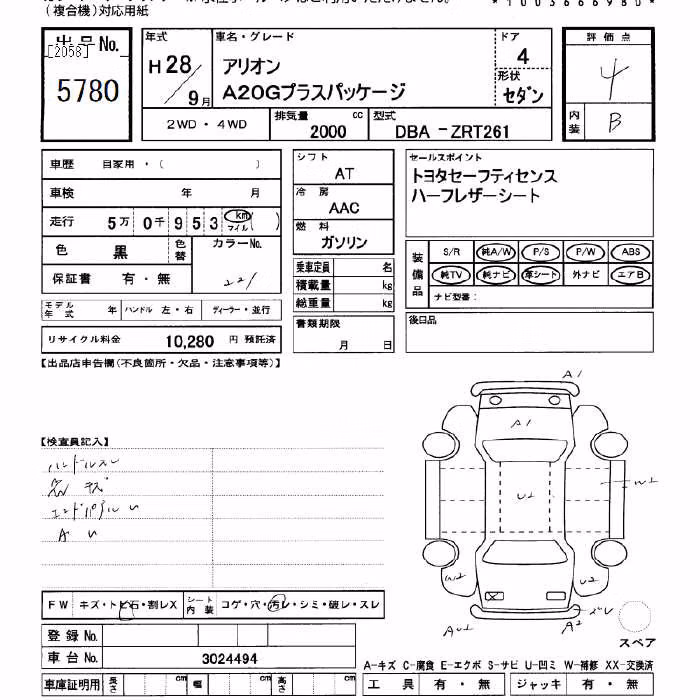 (複合機)対応用紙
*1003666980*
出品No.
[2058]
5780
年式
H28/9月
車名・グレード
アリオン
A20Gプラスパッケージ
ドア
4
形状
セダン
2WD・4WD
排気量
2000 cc
型式
DBA-ZRT261
評価点
4
内装
B
車歴 自家用・( )
車検 年 月
走行 5万0千953 km マイル ( )
色 黒
色替
カラーNo.
221
保証書 有・無
モデル年式 年
ハンドル 左・右
ディーラー・並行
リサイクル料金 10,280 円 預託済
シフト
AT
冷房
AAC
燃料
ガソリン
乗車定員 名
積載量 kg
総重量 kg
書類期限
月 日
セールスポイント
トヨタセーフティセンス
ハーフレザーシート
装備品
S/R 純A/W P/S P/W ABS
純TV 純ナビ 革シート 外ナビ エアB
ナビ型番:
後日品
【出品店申告欄(不良箇所・欠品・注意事項等)】
【検査員記入】
ハンドルスレ
キズ
A U
A1
A1
U1
W1
W2
U2
スレ
AU1
A2
スペア
FW キズ・トビ石・割レX
シート内装 コゲ・穴・汚レ・シミ・破レ・スレ
登録No.
車台No. 3024494
車庫証明用 長さ cm 幅 cm 高さ cm
A-キズ C-腐食 E-エクボ S-サビ U-凹ミ W-補修 XX-交換済
工具 有・無 ジャッキ 有・無